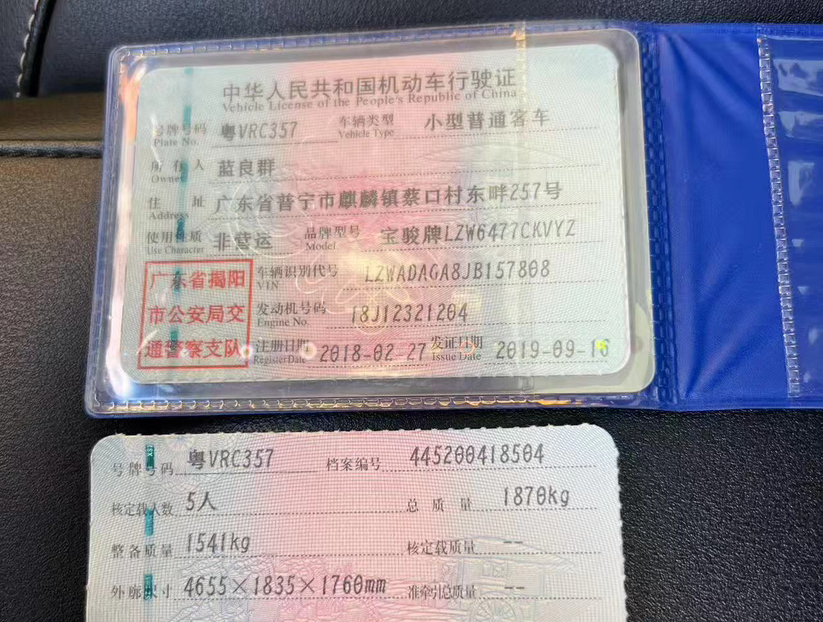 中华人民共和国机动车行驶证
Vehicle License of the People's Republic of China
号牌号码 粤VRC357 车辆类型 小型普通客车
Plate No. Vehicle Type
所有人 蓝良群
Owner
住址 广东省普宁市麒麟镇蔡口村东畔257号
Address
使用性质 非营运 品牌型号 宝骏牌LZW6477CKVYZ
Use Character Model
广东省揭阳
市公安局交
通警察支队
车辆识别代号 LZWADAGA8JB157808
VIN
发动机号码 18J12321204
Engine No.
注册日期 2018-02-27 发证日期 2019-09-16
Register Date Issue Date
号牌号码 粤VRC357 档案编号 445200418504
核定载人数 5人 总质量 1870kg
整备质量 1541kg 核定载质量 --
外廓尺寸 4655×1835×1760mm 准牵引总质量 --